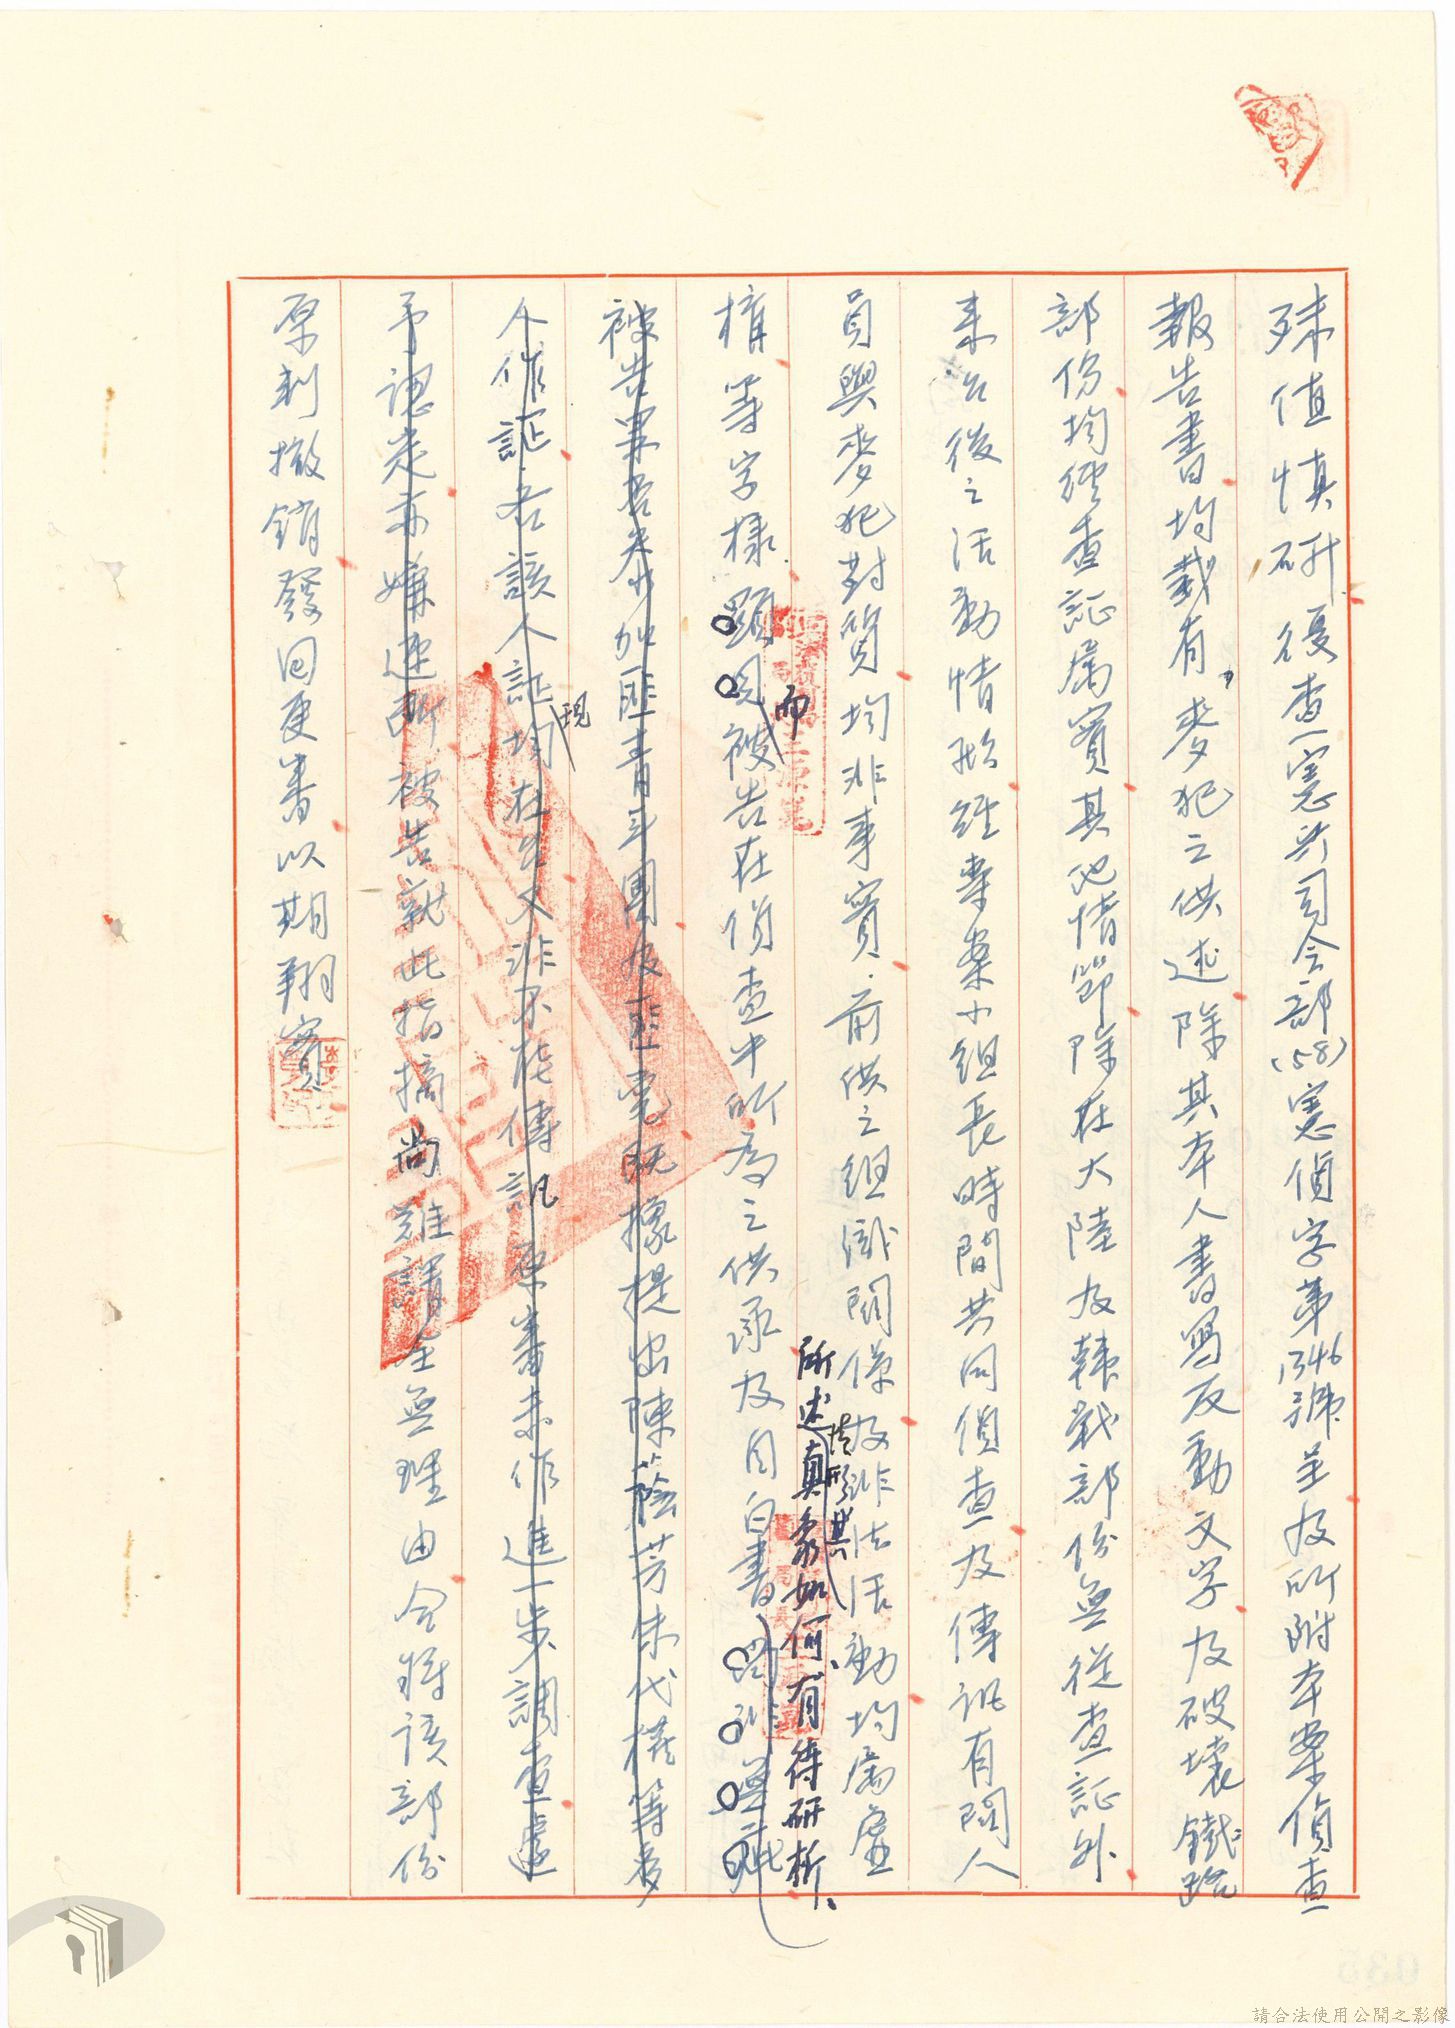 殊值慎研復查憲兵司令部(58)憲偵字第1346號呈及所附本案偵查
報告書均載有，麥犯之供述除其本人書寫反動文字及破壞鐵路
部份均經查証屬實其他情節除在大陸及韓戰部份無從查証外
來台後之活動情形經專案小組長時間共同偵查及傳訊有關人
員與麥犯對質均非事實．前供之組織關係及非法活動均屬虛
構等字樣顯見被告在偵查中所為之供承及自白書
而
情形其
所述真象如何，有待研析、
被告果否參加匪青年團及匪黨既據提出陳蔭芳朱代模等多
人作証．各該人証均在台又非不能傳訊原審未作進一步調查遽
現
予認定亦嫌速斷被告就此指摘尚難謂全無理由合將該部份
原判撤銷發回更審以期翔實
請合法使用公開之影像